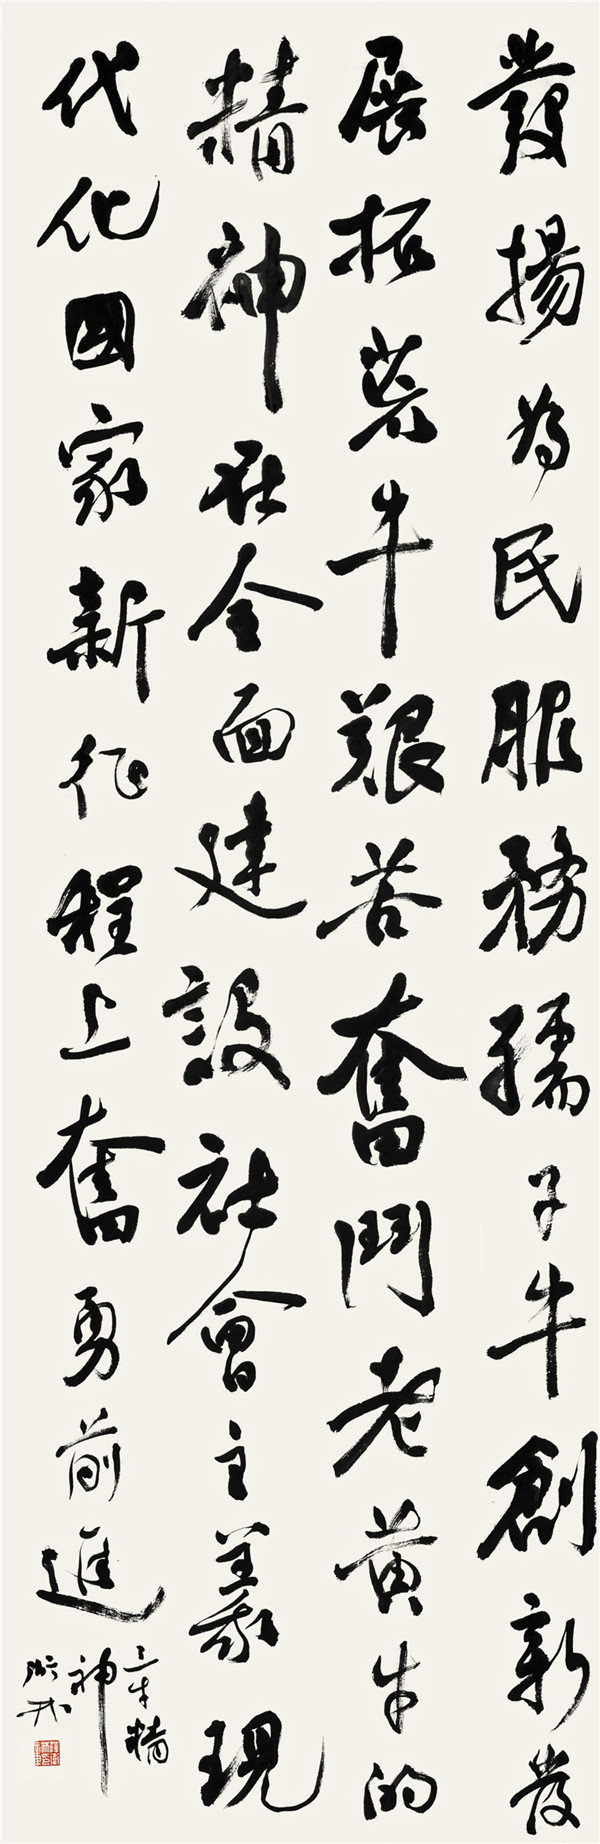 發揚為民服務孺子牛創新發
展拓荒牛艱苦奮鬥老黃牛的
精神在全面建設社會主義現
代化國家新征程上奮勇前進
三牛精
神